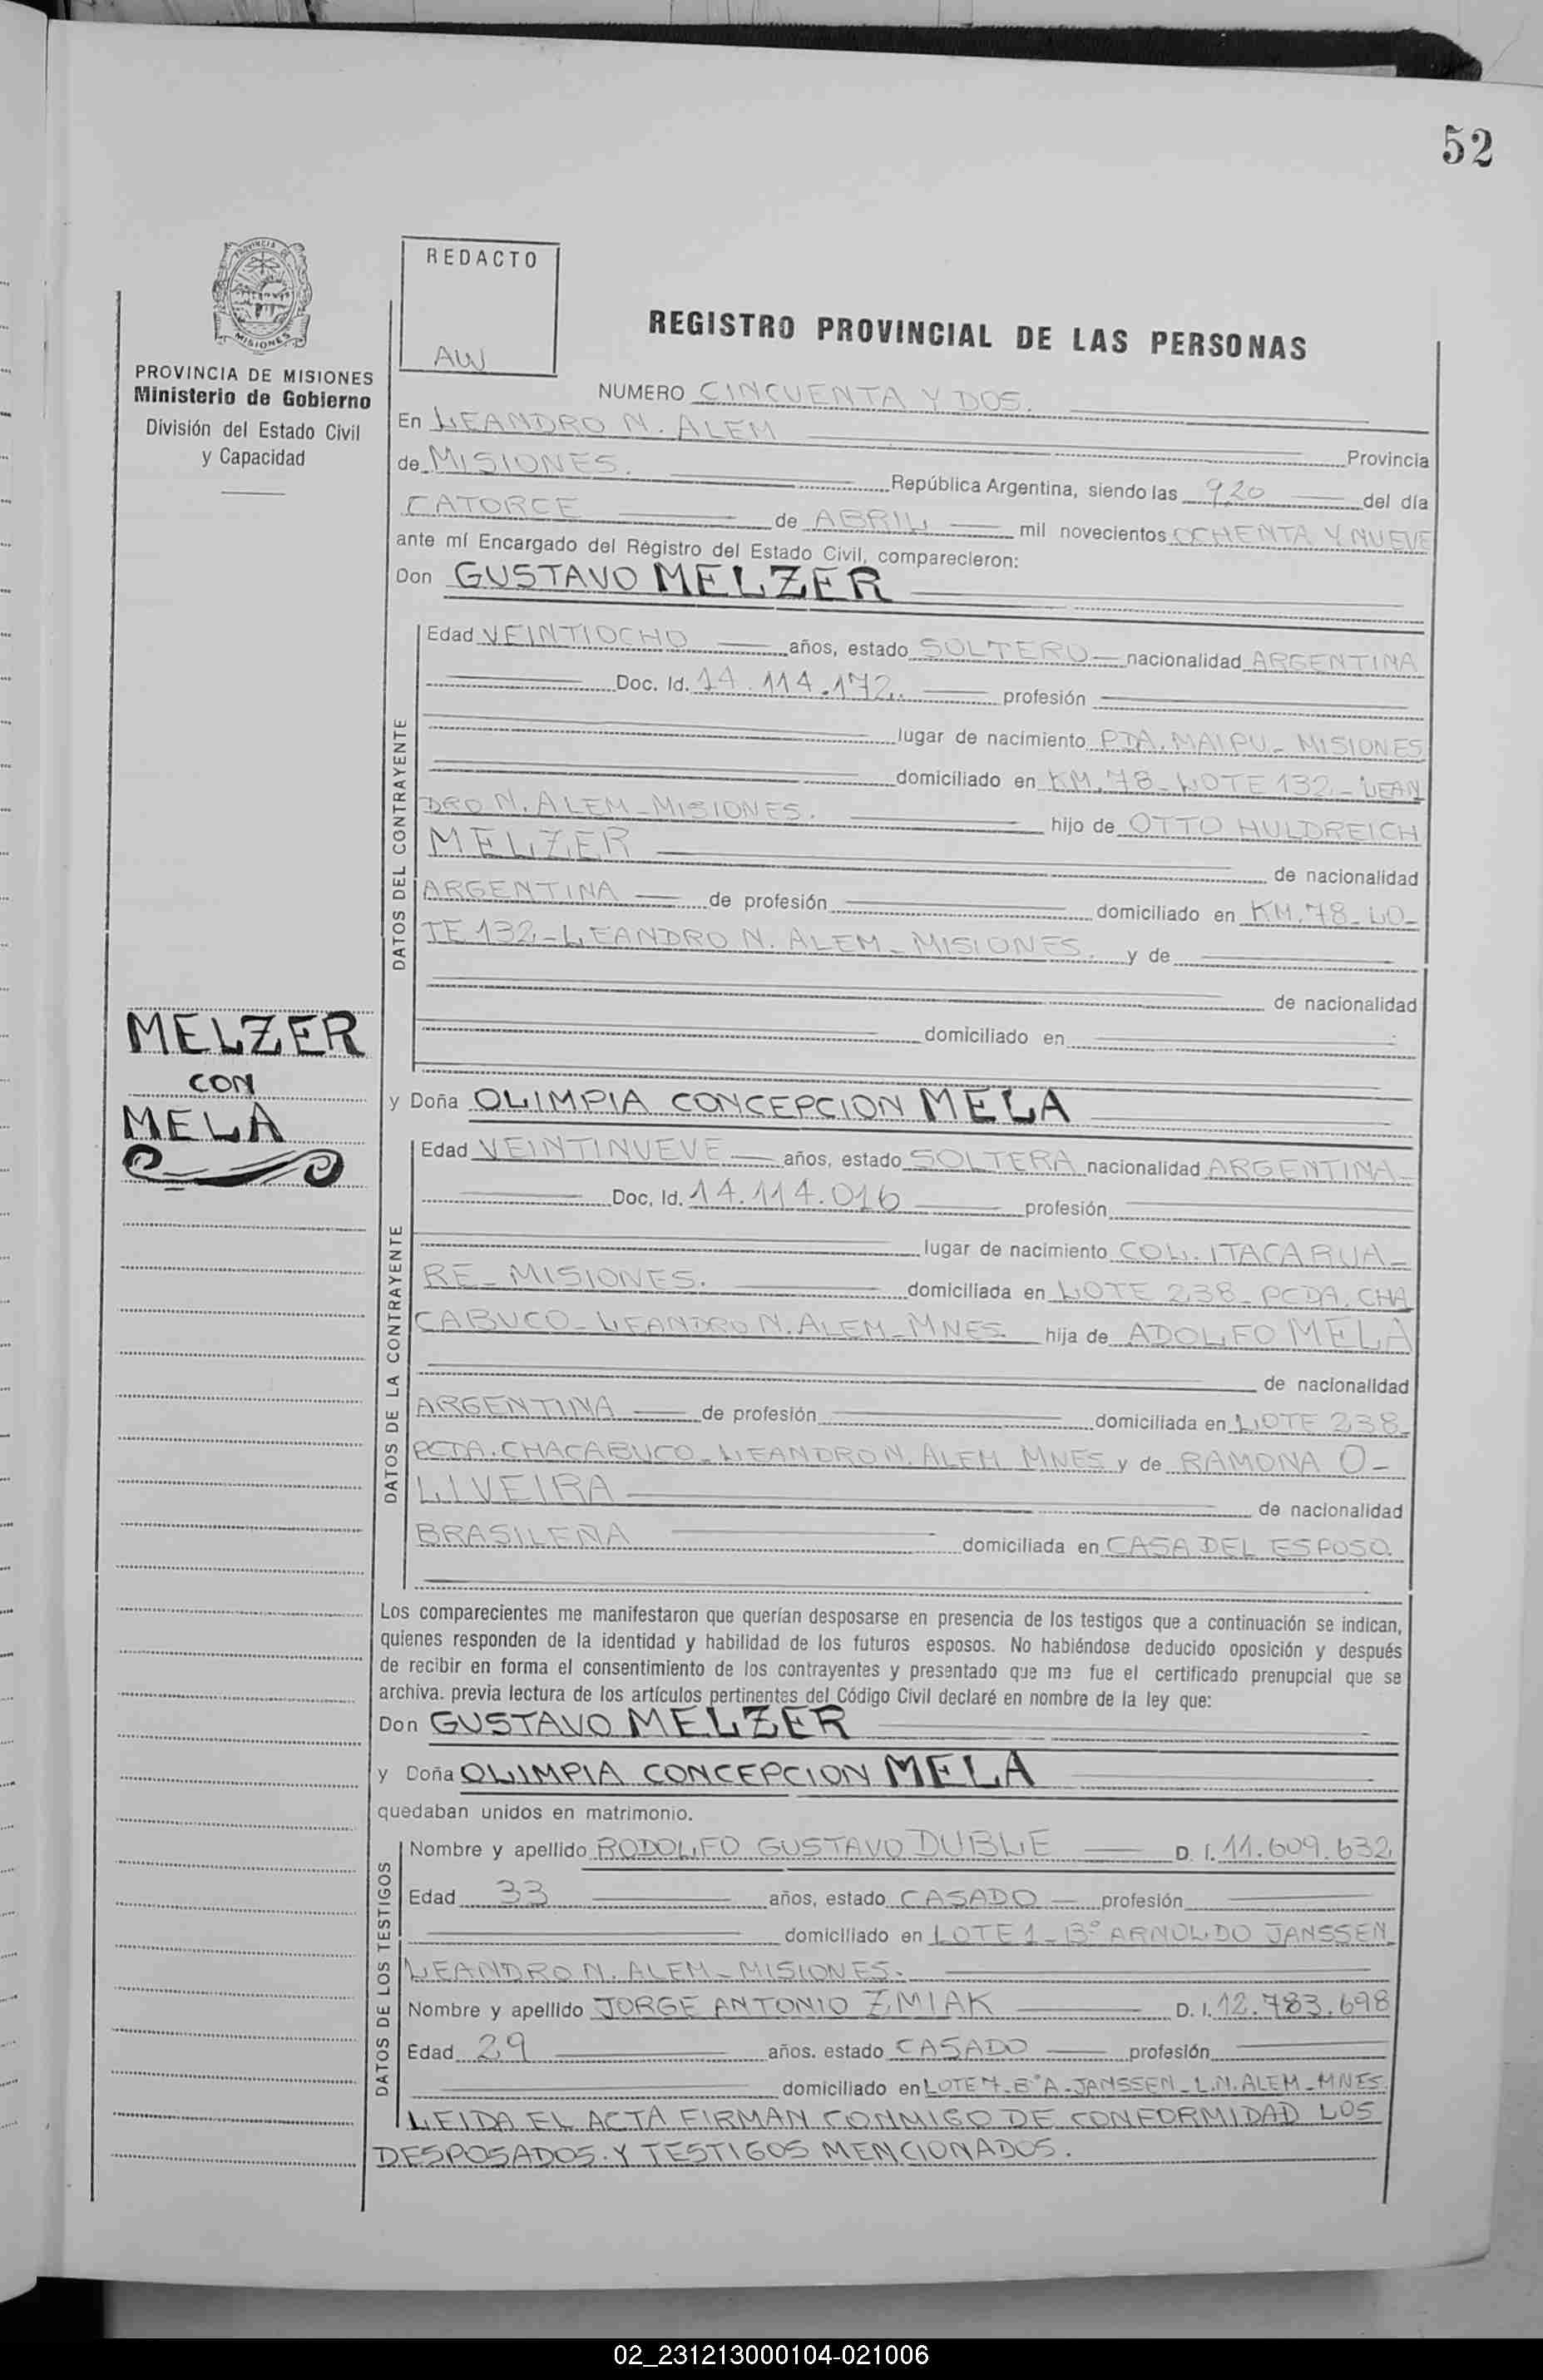 52
PROVINCIA DE
MISIONES
PROVINCIA DE MISIONES
Ministerio de Gobierno
División del Estado Civil
y Capacidad
REDACTO
AW
REGISTRO PROVINCIAL DE LAS PERSONAS
NUMERO CINCUENTA Y DOS.
En LEANDRO N. ALEM Provincia
de MISIONES. República Argentina, siendo las 9,20 del día
CATORCE de ABRIL mil novecientos OCHENTA Y NUEVE
ante mí Encargado del Registro del Estado Civil, comparecieron:
Don GUSTAVO MELZER
DATOS DEL CONTRAYENTE
Edad VEINTIOCHO años, estado SOLTERO nacionalidad ARGENTINA
Doc. Id. 14.114.172. profesión
lugar de nacimiento PDA. MAIPU - MISIONES
domiciliado en KM. 78 - LOTE 132 - LEAN
DRO N. ALEM - MISIONES. hijo de OTTO HULDREICH
MELZER de nacionalidad
ARGENTINA de profesión domiciliado en KM. 78 - LO-
TE 132 - LEANDRO N. ALEM - MISIONES. y de
de nacionalidad
domiciliado en
MELZER
CON
MELA
y Doña OLIMPIA CONCEPCION MELA
DATOS DE LA CONTRAYENTE
Edad VEINTINUEVE años, estado SOLTERA nacionalidad ARGENTINA
Doc. Id. 14.114.016 profesión
lugar de nacimiento COL. ITACARUA-
RE - MISIONES. domiciliada en LOTE 238 - PCDA. CHA
CABUCO - LEANDRO N. ALEM - MNES. hija de ADOLFO MELA
de nacionalidad
ARGENTINA de profesión domiciliada en LOTE 238-
PCDA. CHACABUCO - LEANDRO N. ALEM MNES y de RAMONA O-
LIVEIRA de nacionalidad
BRASILEÑA domiciliada en CASA DEL ESPOSO.
Los comparecientes me manifestaron que querían desposarse en presencia de los testigos que a continuación se indican,
quienes responden de la identidad y habilidad de los futuros esposos. No habiéndose deducido oposición y después
de recibir en forma el consentimiento de los contrayentes y presentado que me fue el certificado prenupcial que se
archiva. previa lectura de los artículos pertinentes del Código Civil declaré en nombre de la ley que:
Don GUSTAVO MELZER
y Doña OLIMPIA CONCEPCION MELA
quedaban unidos en matrimonio.
DATOS DE LOS TESTIGOS
Nombre y apellido RODOLFO GUSTAVO DUBLE D. I. 11.609.632
Edad 33 años, estado CASADO profesión
domiciliado en LOTE 1 - B° ARNOLDO JANSSEN
LEANDRO N. ALEM - MISIONES.
Nombre y apellido JORGE ANTONIO ZMIAK D. I. 12.783.698
Edad 29 años. estado CASADO profesión
domiciliado en LOTE 7 - B° A. JANSSEN - L.N. ALEM - MNES.
LEIDA EL ACTA FIRMAN CONMIGO DE CONFORMIDAD LOS
DESPOSADOS Y TESTIGOS MENCIONADOS.
02_231213000104-021006